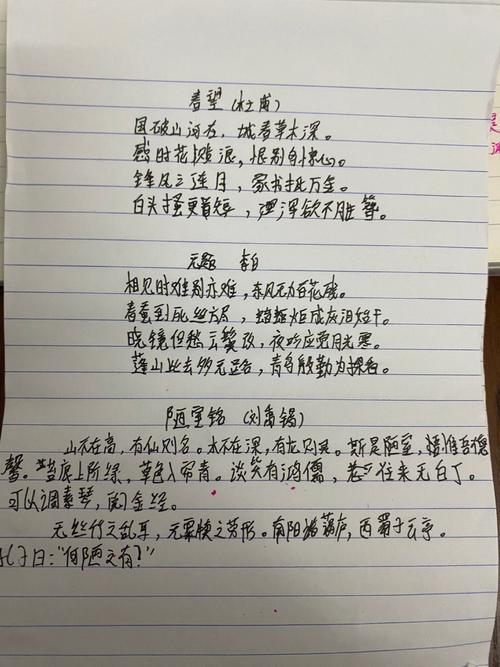 春望（杜甫）
国破山河在，城春草木深。
感时花溅泪，恨别鸟惊心。
烽火连三月，家书抵万金。
白头搔更短，浑欲不胜簪。
无题 李白
相见时难别亦难，东风无力百花残。
春蚕到死丝方尽，蜡炬成灰泪始干。
晓镜但愁云鬓改，夜吟应觉月光寒。
蓬山此去多无路，青鸟殷勤为探看。
陋室铭（刘禹锡）
山不在高，有仙则名。水不在深，有龙则灵。斯是陋室，惟吾德
馨。苔痕上阶绿，草色入帘青。谈笑有鸿儒，往来无白丁。
可以调素琴，阅金经。
无丝竹之乱耳，无案牍之劳形。南阳诸葛庐，西蜀子云亭。
孔子曰："何陋之有？"